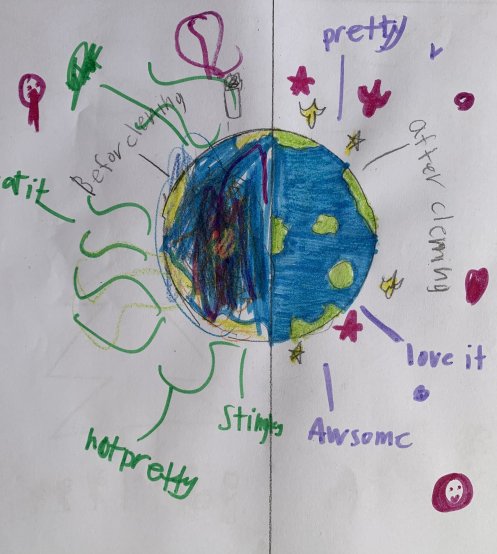 pretty
Befor cleming
after cleming
at it
love it
Stingky
Awsome
notpretty